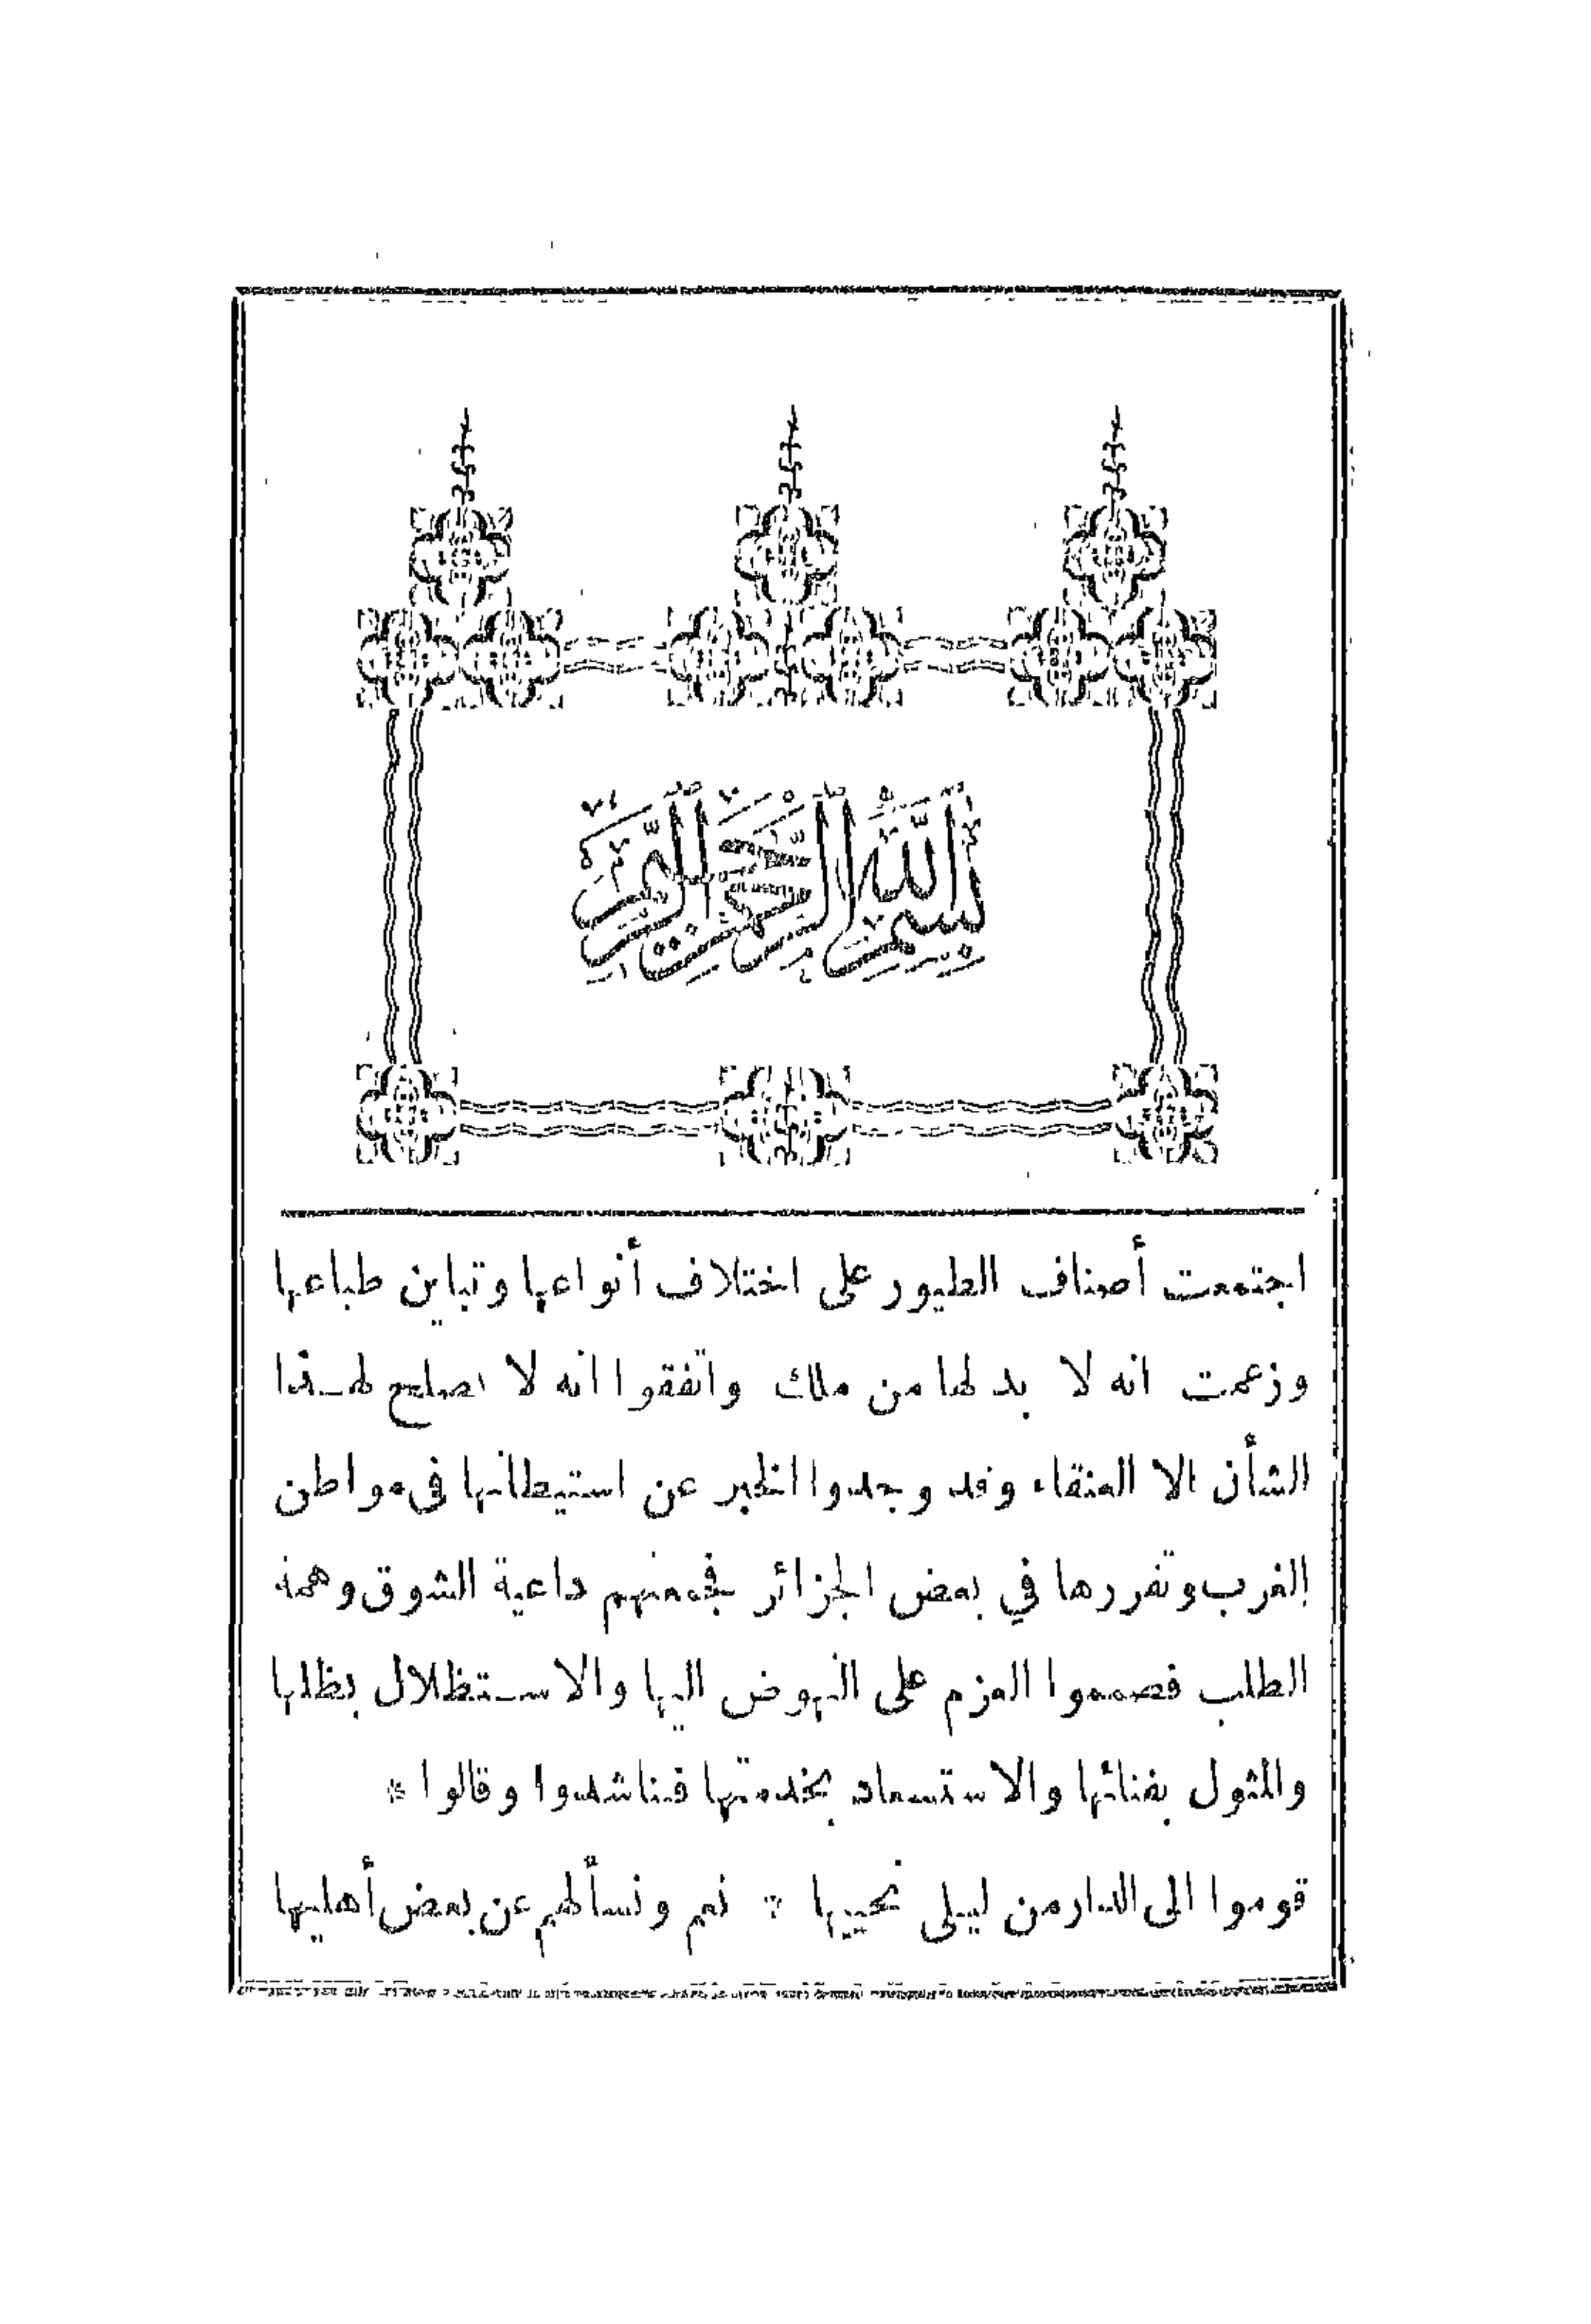 بِسْمِ اللَّهِ الرَّحْمَٰنِ الرَّحِيمِ
اجتمعت أصناف الطيور على اختلاف أنواعها وتباين طباعها
وزعمت انه لا بد لها من ملك واتفقوا انه لا يصلح لهذا
الشأن الا العنقاء وقد وجدوا الخبر عن استيطانها فى مواطن
الغرب وتقررها في بعض الجزائر فجمعتهم داعية الشوق وهمة
الطلب فصمموا العزم على النهوض اليها والاستظلال بظلها
والمثول بفنائها والاستسعاد بخدمتها فتناشدوا وقالوا *
قوموا الى الدار من ليلى نحييها * نعم ونسألهم عن بعض أهليها